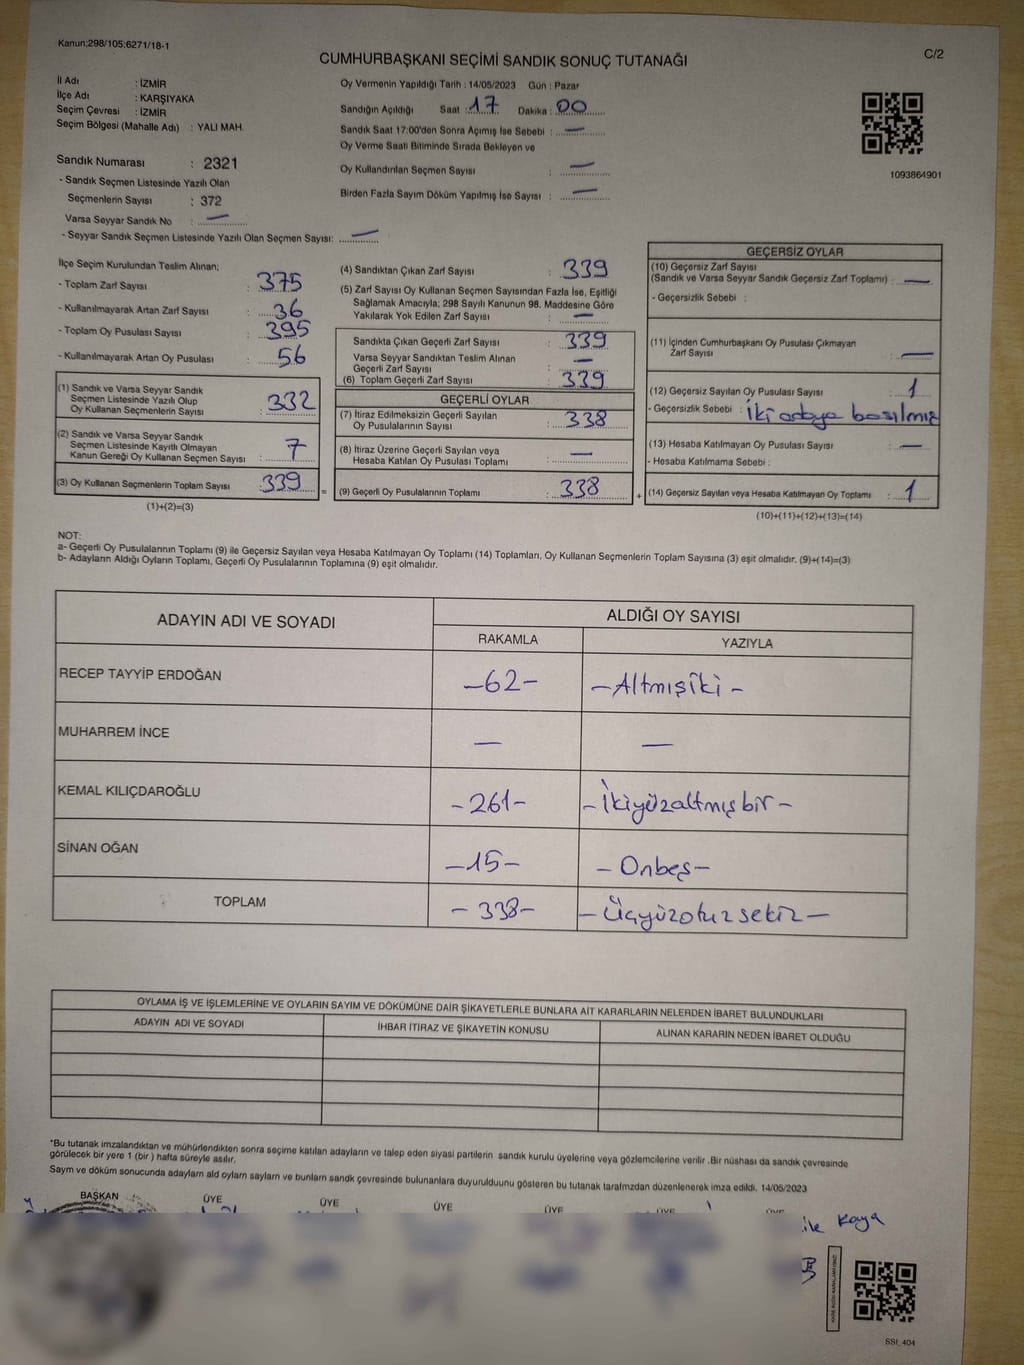 Kanun;298/105;6271/18-1
C/2
CUMHURBAŞKANI SEÇİMİ SANDIK SONUÇ TUTANAĞI
İl Adı : İZMİR
İlçe Adı : KARŞIYAKA
Seçim Çevresi : İZMİR
Seçim Bölgesi (Mahalle Adı) : YALI MAH.
Sandık Numarası : 2321
- Sandık Seçmen Listesinde Yazılı Olan
Seçmenlerin Sayısı : 372
Varsa Seyyar Sandık No : —
- Seyyar Sandık Seçmen Listesinde Yazılı Olan Seçmen Sayısı: —
Oy Vermenin Yapıldığı Tarih : 14/05/2023 Gün : Pazar
Sandığın Açıldığı Saat : 17 Dakika : 00
Sandık Saat 17:00'den Sonra Açımış İse Sebebi : —
Oy Verme Saati Bitiminde Sırada Bekleyen ve
Oy Kullandırılan Seçmen Sayısı : —
Birden Fazla Sayım Döküm Yapılmış İse Sayısı : —
1093864901
İlçe Seçim Kurulundan Teslim Alınan;
- Toplam Zarf Sayısı : 375
- Kullanılmayarak Artan Zarf Sayısı : 36
- Toplam Oy Pusulası Sayısı : 395
- Kullanılmayarak Artan Oy Pusulası : 56
(1) Sandık ve Varsa Seyyar Sandık
Seçmen Listesinde Yazılı Olup
Oy Kullanan Seçmenlerin Sayısı : 332
(2) Sandık ve Varsa Seyyar Sandık
Seçmen Listesinde Kayıtlı Olmayan
Kanun Gereği Oy Kullanan Seçmen Sayısı : 7
(3) Oy Kullanan Seçmenlerin Toplam Sayısı : 339 =
(1)+(2)=(3)
(4) Sandıktan Çıkan Zarf Sayısı : 339
(5) Zarf Sayısı Oy Kullanan Seçmen Sayısından Fazla İse, Eşitliği
Sağlamak Amacıyla; 298 Sayılı Kanunun 98. Maddesine Göre
Yakılarak Yok Edilen Zarf Sayısı : —
Sandıkta Çıkan Geçerli Zarf Sayısı : 339
Varsa Seyyar Sandıktan Teslim Alınan
Geçerli Zarf Sayısı : —
(6) Toplam Geçerli Zarf Sayısı : 339
GEÇERLİ OYLAR
(7) İtiraz Edilmeksizin Geçerli Sayılan
Oy Pusulalarının Sayısı : 338
(8) İtiraz Üzerine Geçerli Sayılan veya
Hesaba Katılan Oy Pusulası Toplamı : —
(9) Geçerli Oy Pusulalarının Toplamı : 338 +
GEÇERSİZ OYLAR
(10) Geçersiz Zarf Sayısı
(Sandık ve Varsa Seyyar Sandık Geçersiz Zarf Toplamı) : —
- Geçersizlik Sebebi :
(11) İçinden Cumhurbaşkanı Oy Pusulası Çıkmayan
Zarf Sayısı : —
(12) Geçersiz Sayılan Oy Pusulası Sayısı : 1
- Geçersizlik Sebebi : İki adaya basılmış
(13) Hesaba Katılmayan Oy Pusulası Sayısı : —
- Hesaba Katılmama Sebebi :
(14) Geçersiz Sayılan veya Hesaba Katılmayan Oy Toplamı : 1
(10)+(11)+(12)+(13)=(14)
NOT:
a- Geçerli Oy Pusulalarının Toplamı (9) ile Geçersiz Sayılan veya Hesaba Katılmayan Oy Toplamı (14) Toplamları, Oy Kullanan Seçmenlerin Toplam Sayısına (3) eşit olmalıdır. (9)+(14)=(3)
b- Adayların Aldığı Oyların Toplamı, Geçerli Oy Pusulalarının Toplamına (9) eşit olmalıdır.
ADAYIN ADI VE SOYADI
ALDIĞI OY SAYISI
RAKAMLA YAZIYLA
RECEP TAYYİP ERDOĞAN -62- -Altmışiki-
MUHARREM İNCE — —
KEMAL KILIÇDAROĞLU -261- -İkiyüzaltmışbir-
SİNAN OĞAN -15- -Onbeş-
TOPLAM -338- -Üçyüzotuzsekiz-
OYLAMA İŞ VE İŞLEMLERİNE VE OYLARIN SAYIM VE DÖKÜMÜNE DAİR ŞİKAYETLERLE BUNLARA AİT KARARLARIN NELERDEN İBARET BULUNDUKLARI
ADAYIN ADI VE SOYADI İHBAR İTİRAZ VE ŞİKAYETİN KONUSU ALINAN KARARIN NEDEN İBARET OLDUĞU
*Bu tutanak imzalandıktan ve mühürlendikten sonra seçime katılan adayların ve talep eden siyasi partilerin sandık kurulu üyelerine veya gözlemcilerine verilir .Bir nüshası da sandık çevresinde
görülecek bir yere 1 (bir ) hafta süreyle asılır.
Sayım ve döküm sonucunda adayların ald oyların sayların ve bunların sandk çevresinde bulunanlara duyurulduunu gösteren bu tutanak tarafmzdan düzenlenerek imza edildi. 14/05/2023
BAŞKAN ÜYE ÜYE ÜYE ÜYE ÜYE
Kaya
SSI_404